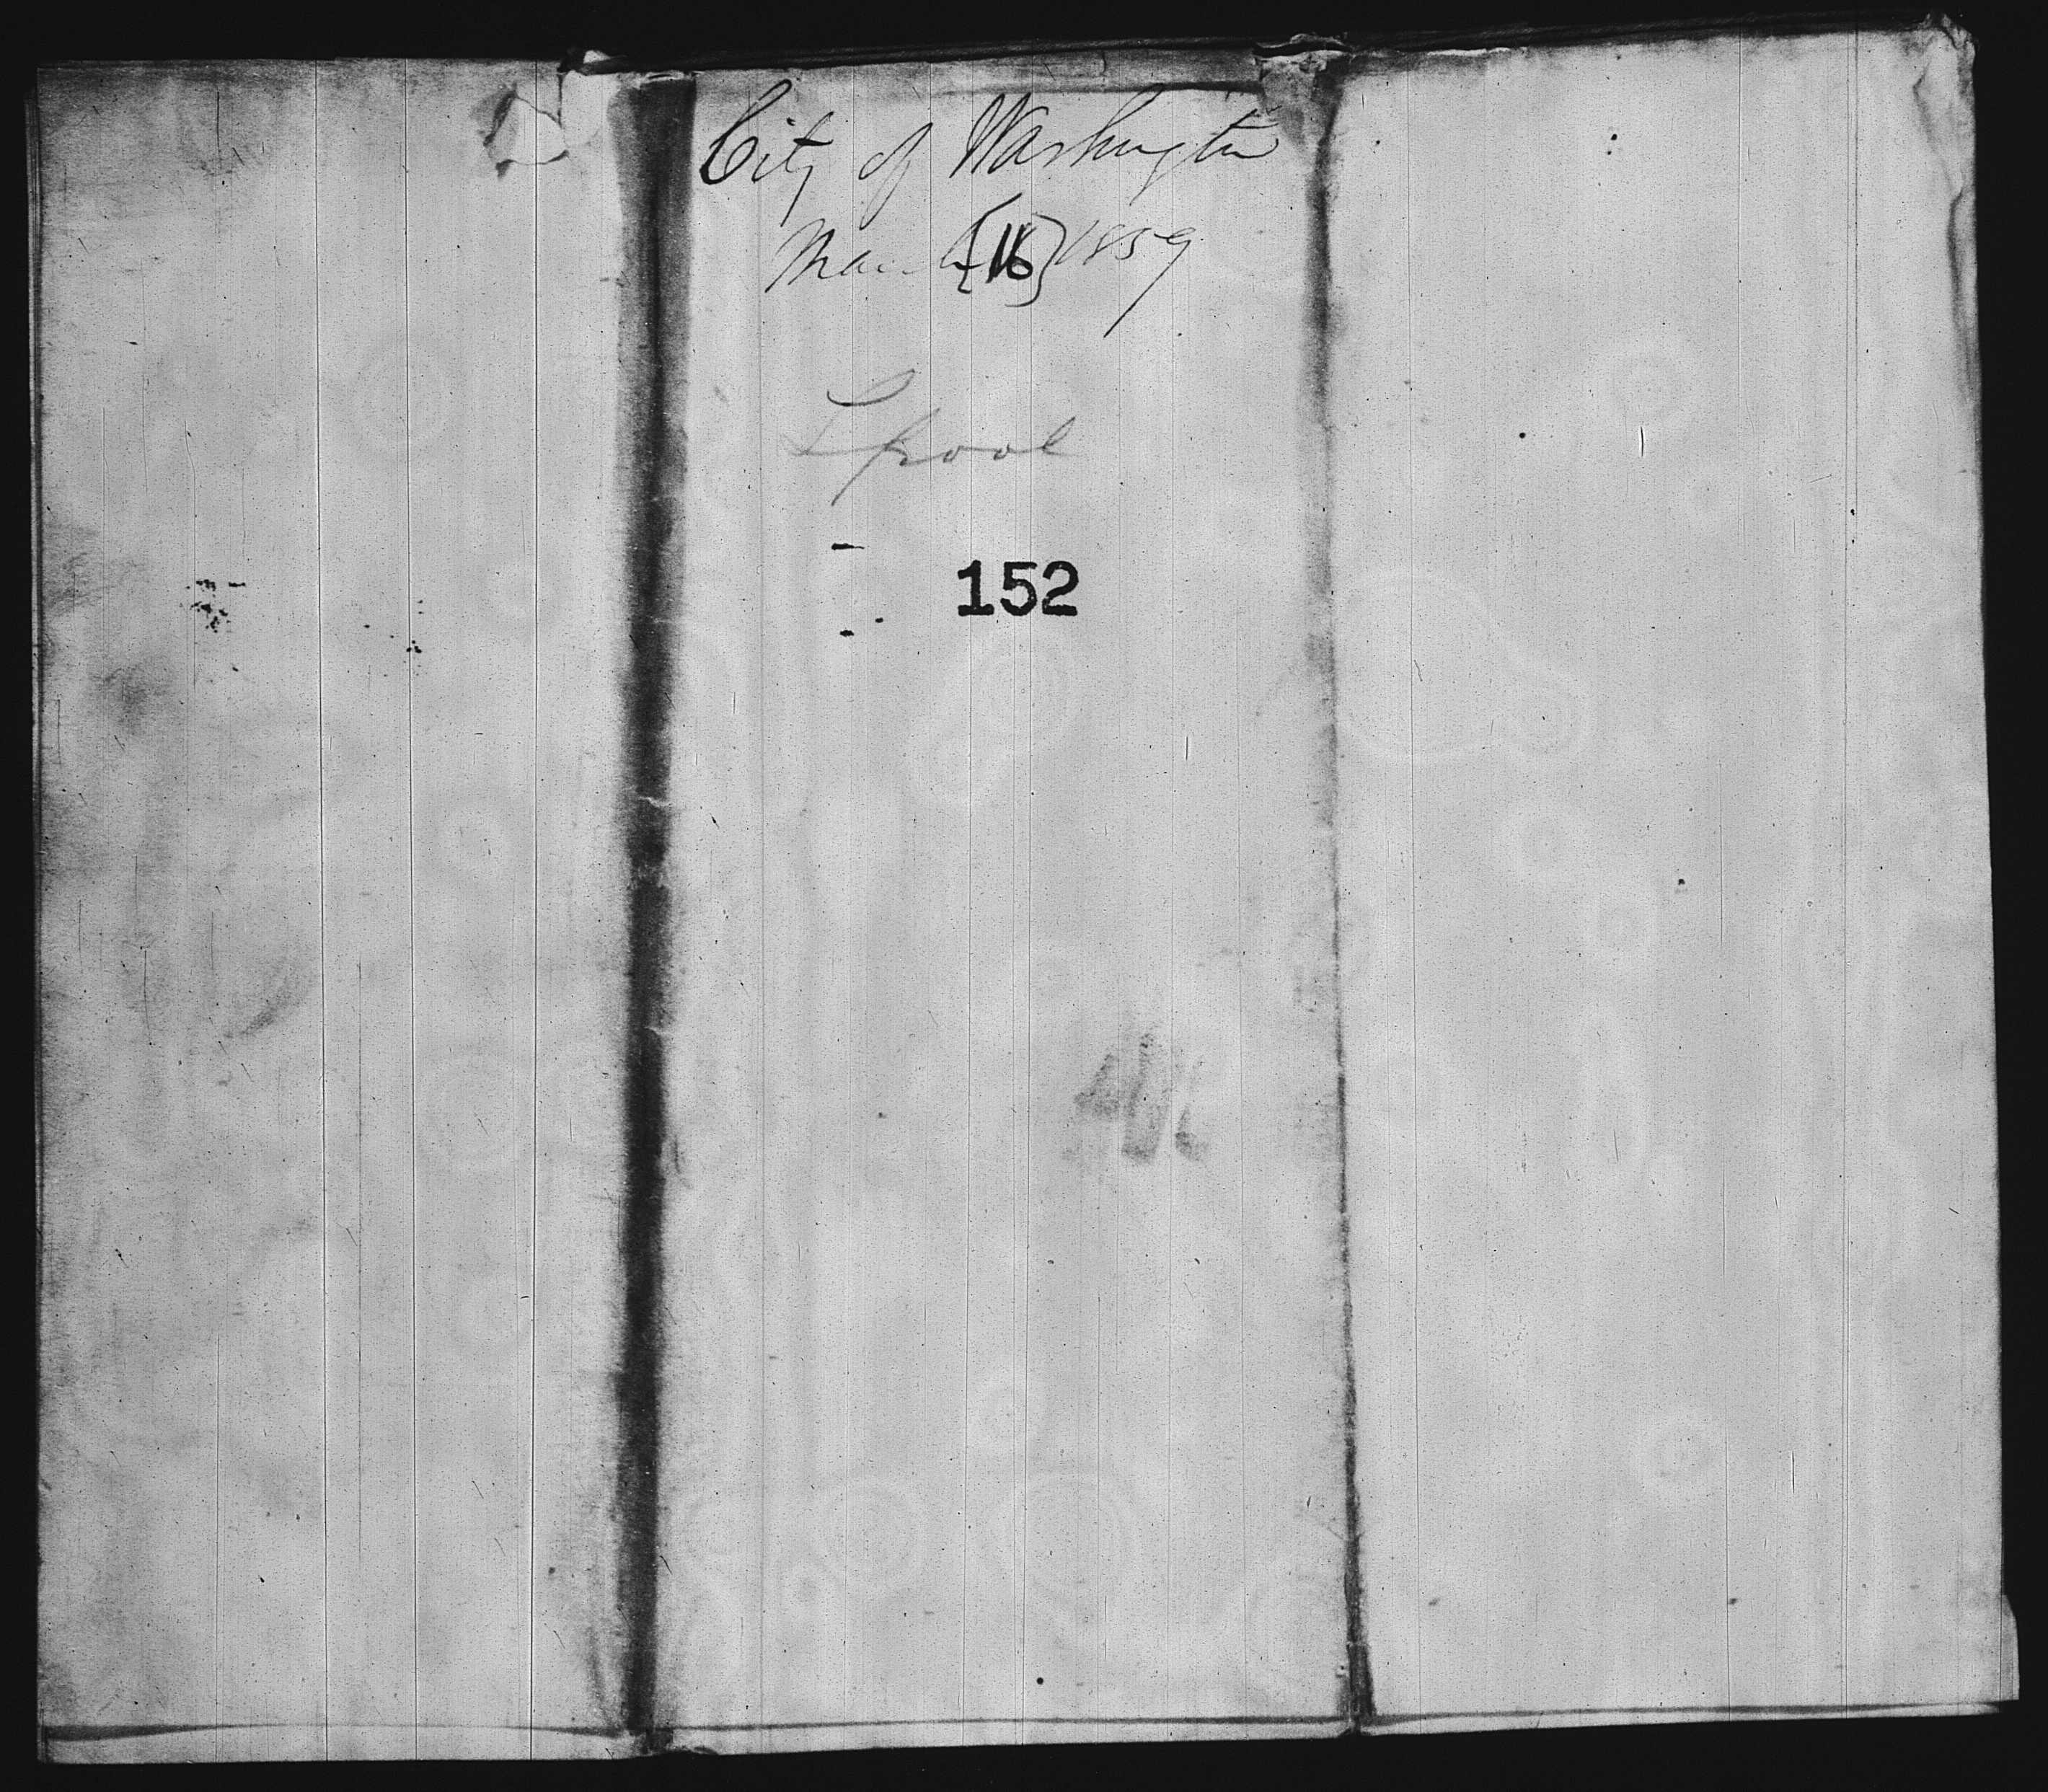 City of Washington
March {16} 1859
Lpool
152